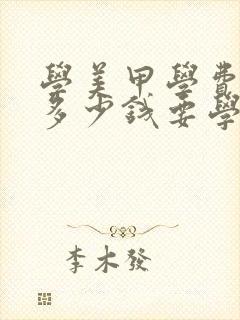 學美甲學費
多少錢要學
李木發